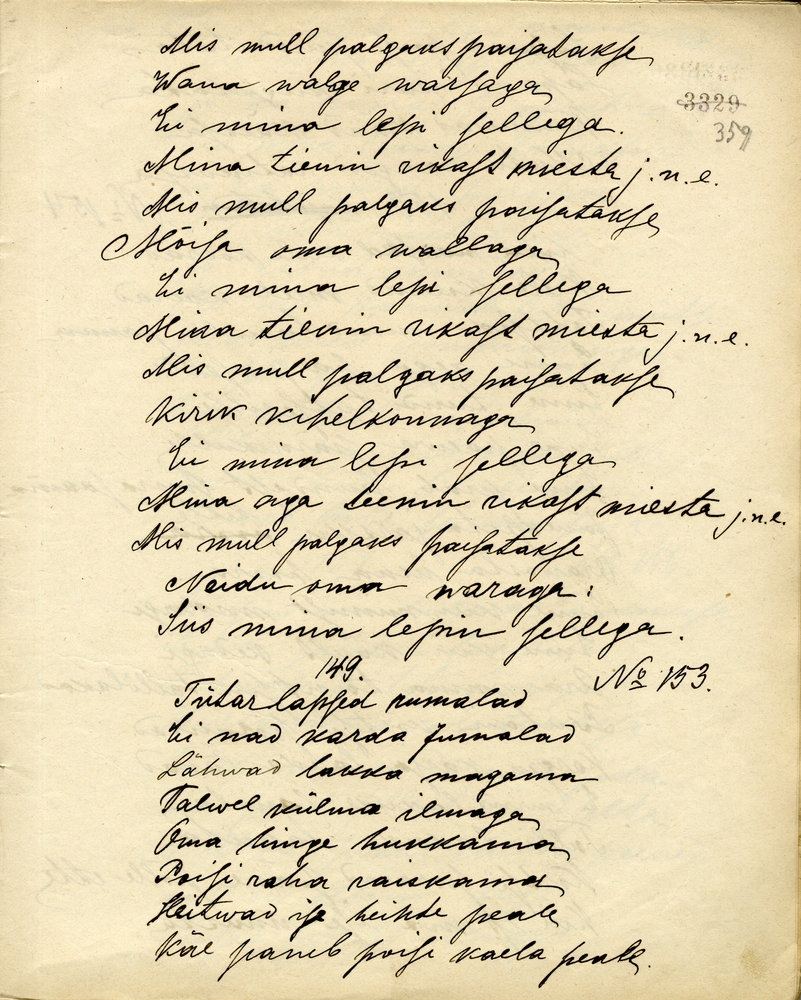 Mis mull palgaks paisatakse
Wana walge warsaga
3329
359
Ei mina lepi sellega.
Mina tienin rikast miesta j.n.e.
Mis mull palgaks paisatakse
Mõisa oma wallaga
Ei mina lepi sellega
Mina tienin rikast miesta j.n.e.
Mis mull palgaks paisatakse
Kirik kihelkonnaga
Ei mina lepi sellega
Mina aga teenin rikast miesta j.n.e.
Mis mull palgaks paisatakse
Neidu oma waraga:
Siis mina lepin sellega.
149.
No 153.
Tütar lapsed rumalad
Ei nad karda Jumalad
Lähwad lakka magama
Talwel külma ilmaga
Oma hinge hukkama
Poisi raha raiskama
Heitwad ise heikte peale
Käe paneb poisi kaela peale.